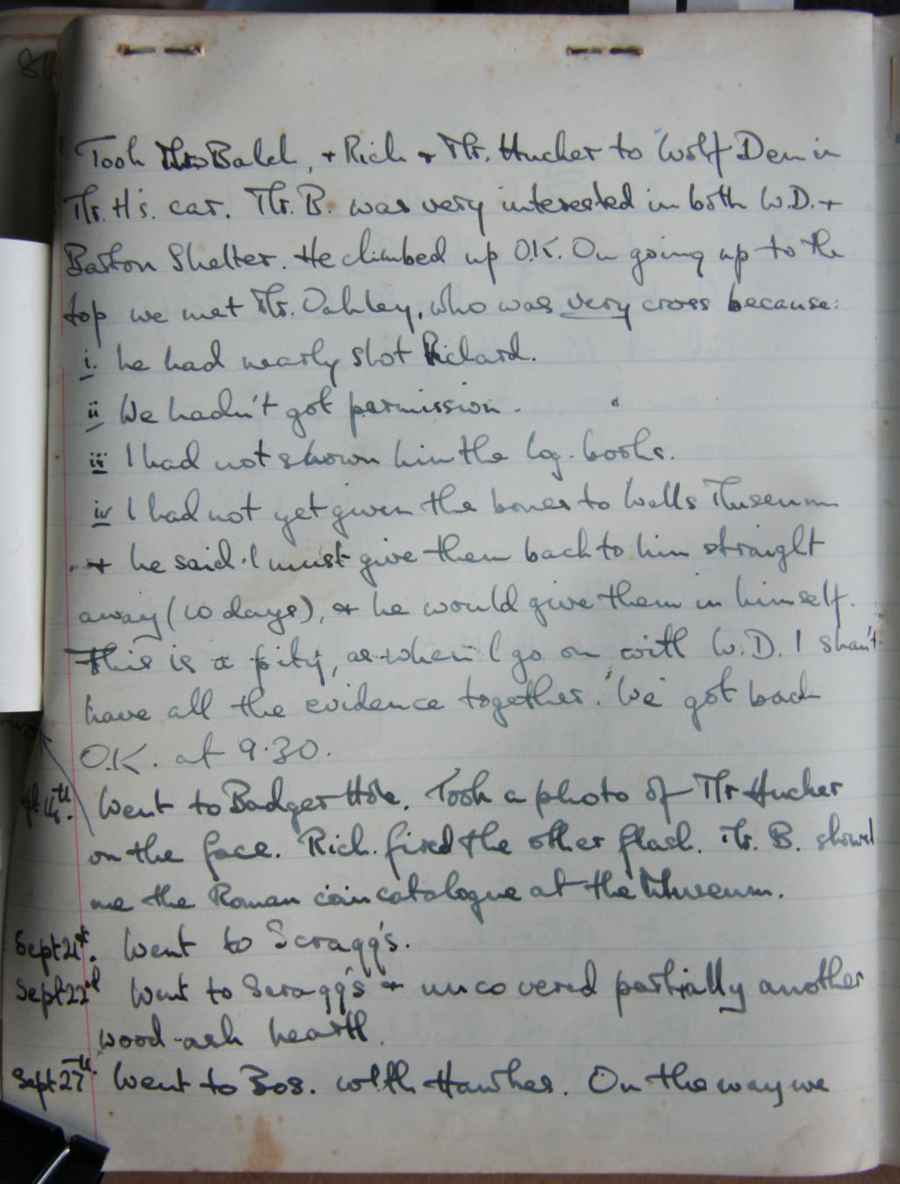 Took Mr Balch, + Rich + Mr. Hucker to Wolf Den in
Mr. H's. car. Mr. B. was very interested in both W.D. +
Barton Shelter. He climbed up O.K. On going up to the
top we met Mr. Oakley, who was very cross because:
i. he had nearly shot Richard.
ii We hadn't got permission.
iii I had not shown him the log-books.
iv I had not yet given the bones to Wells Museum
+ he said I must give them back to him straight
away (10 days), + he would give them in himself.
This is a pity, as when I go on with W.D. I shan't
have all the evidence together. We got back
O.K. at 9.30.
14th. Went to Badger Hole. Took a photo of Mr Hucker
on the face. Rich. fired the other flash. Mr. B. showed
me the Roman coin catalogue at the Museum.
Sept 21st. Went to Scragg's.
Sept 22nd Went to Scragg's + uncovered partially another
wood-ash hearth.
Sept 27th. Went to Bos. with Hawkes. On the way we